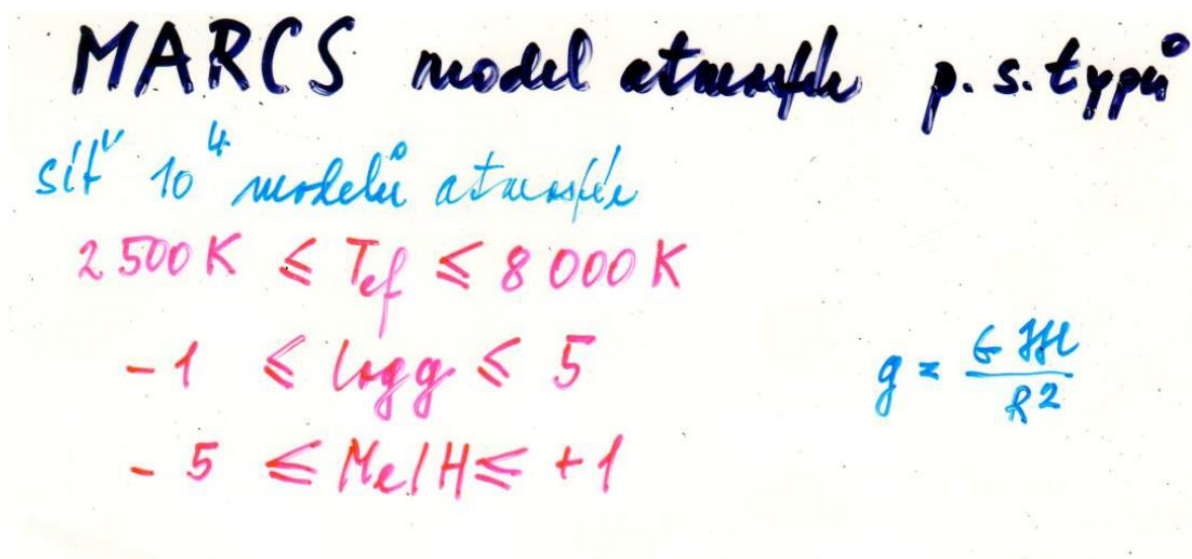 MARCS model atmosfér p. s. typů
síť 10⁴ modelů atmosfér
2 500 K ≤ Tef ≤ 8 000 K
-1 ≤ log g ≤ 5
g = G M / R²
-5 ≤ Me/H ≤ +1